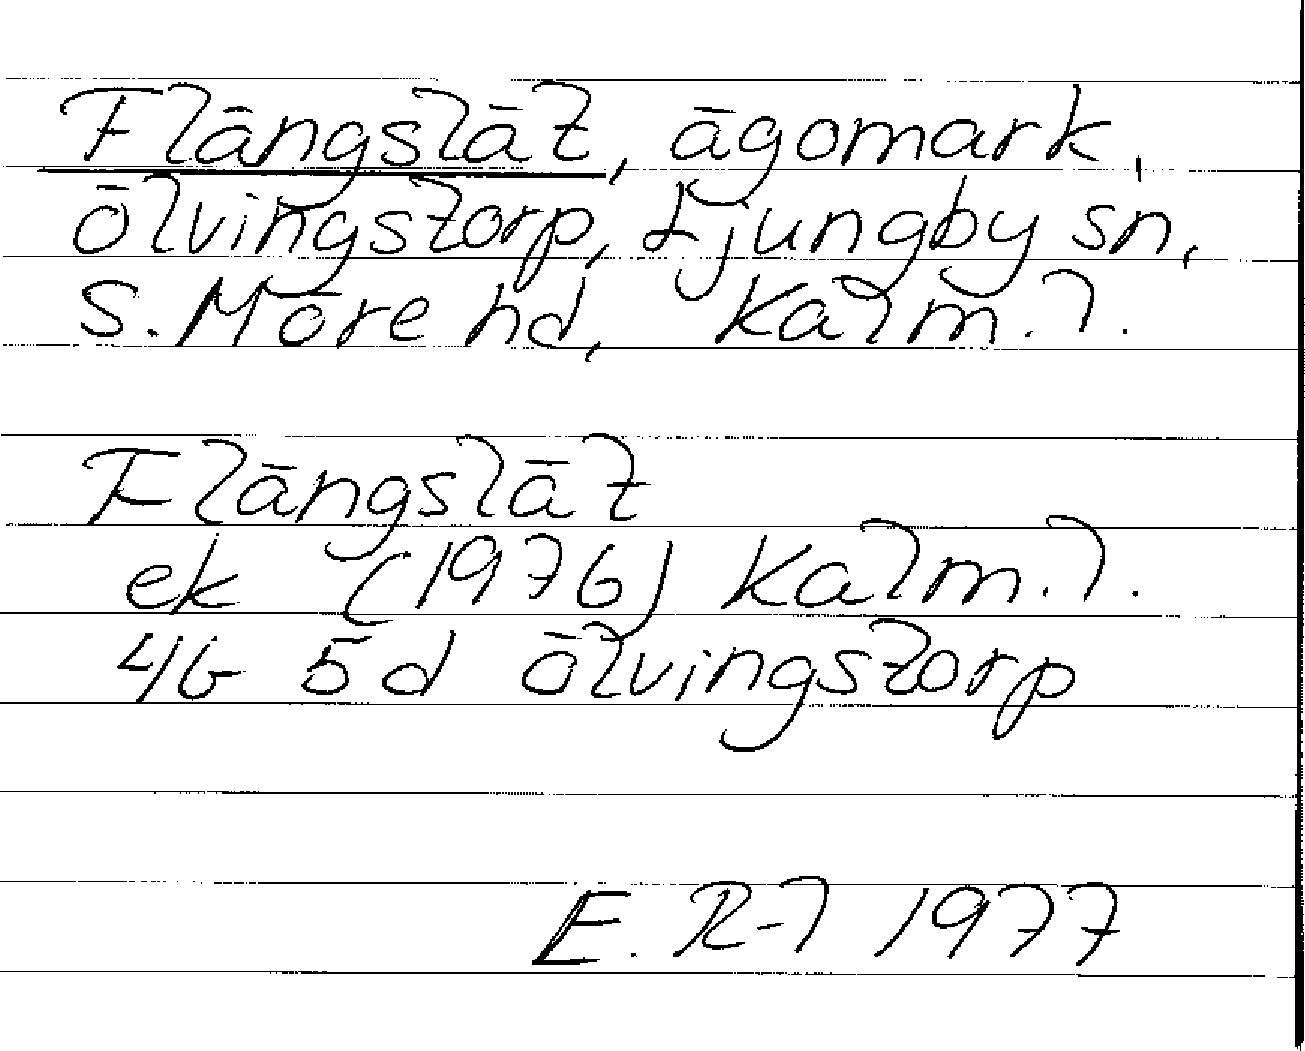 Flängslät, ägomark,
Ölvingstorp, Ljungby sn,
S. Möre hd, Kalm. l.
Flängslät
ek (1976) Kalm. l.
4G 5d Ölvingstorp
E. R-l 1977